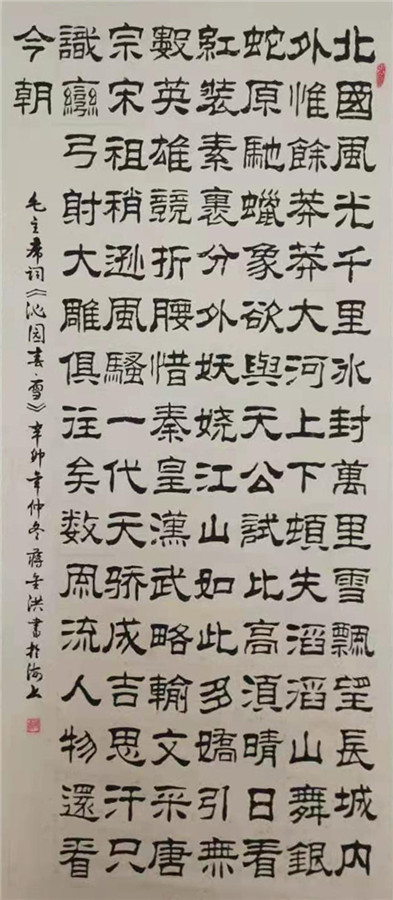 北國風光千里冰封萬里雪飄望長城內
外惟餘莽莽大河上下頓失滔滔山舞銀
蛇原馳蠟象欲與天公試比高湏晴日看
紅裝素裹分外妖娆江山如此多嬌引無
數英雄競折腰惜秦皇漢武略輸文采唐
宗宋祖稍遜風騷一代天骄成吉思汗只
識彎弓射大雕俱往矣数凮流人物還看
今朝
毛主席词《沁园春·雪》辛卯年仲冬蒋洪書於海上